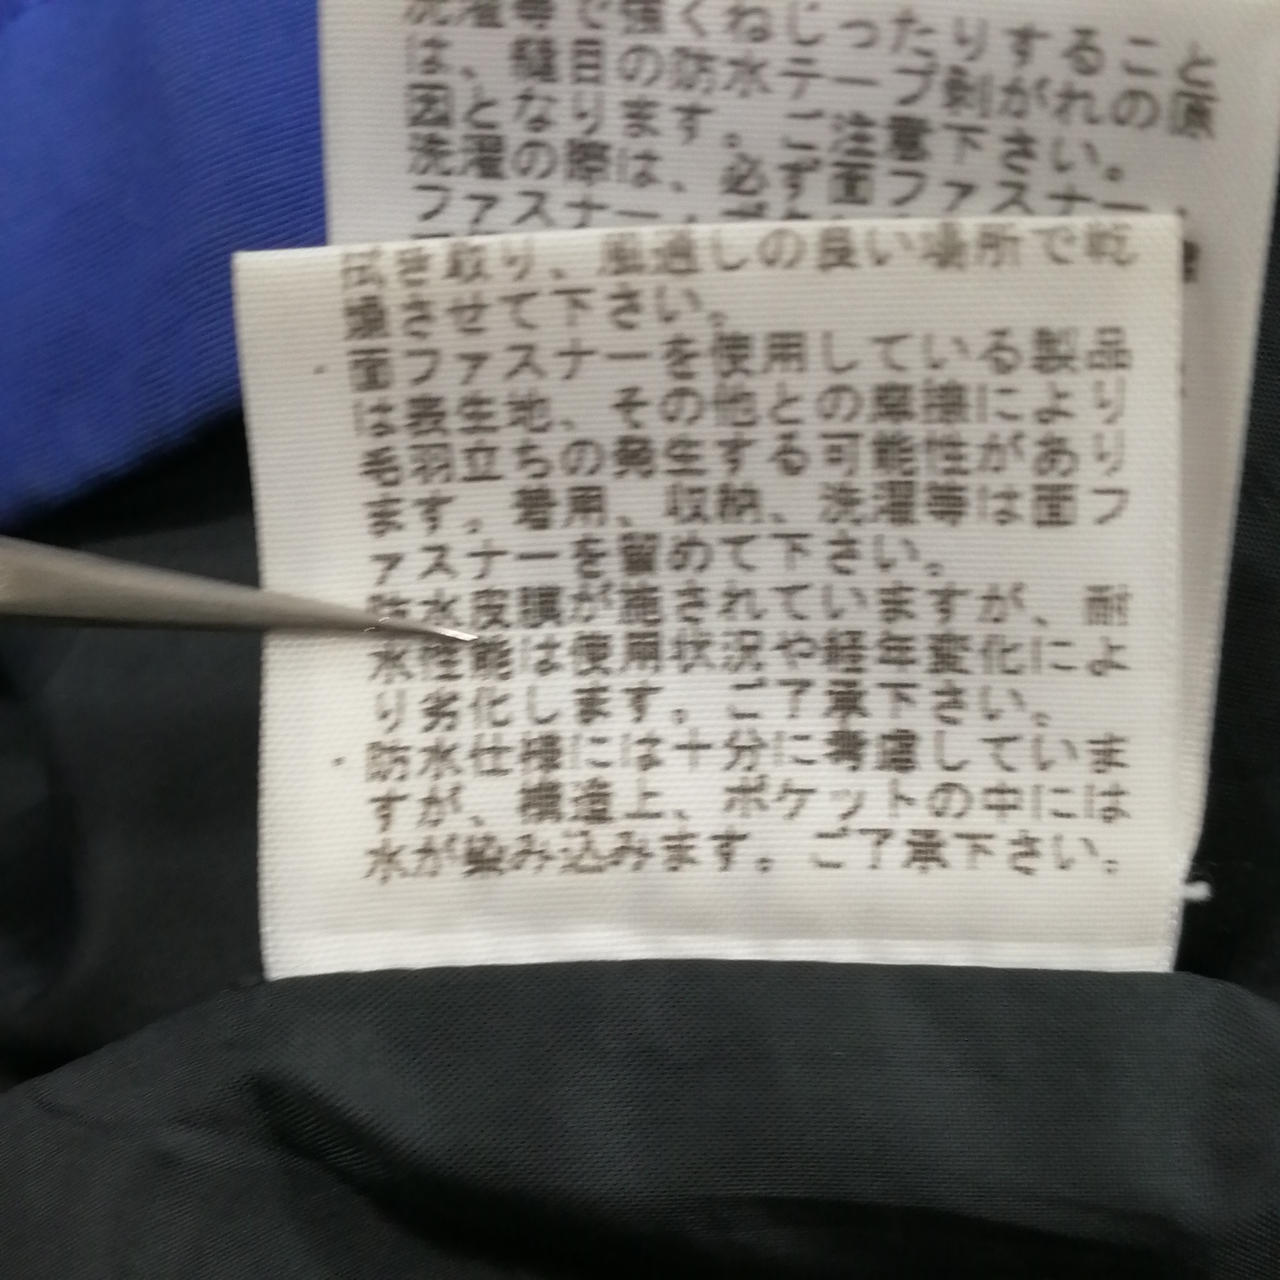 洗濯等で強くねじったりすること
は、縫目の防水テープ剥がれの原
因となります。ご注意下さい。
洗濯の際は、必ず面ファスナー、
拭き取り、風通しの良い場所で乾
燥させて下さい。
・面ファスナーを使用している製品
は表生地、その他との摩擦により
毛羽立ちの発生する可能性があり
ます。着用、収納、洗濯等は面フ
ァスナーを留めて下さい。
防水皮膜が施されていますが、耐
水性能は使用状況や経年変化によ
り劣化します。ご了承下さい。
・防水仕様には十分に考慮していま
すが、構造上、ポケットの中には
水が染み込みます。ご了承下さい。